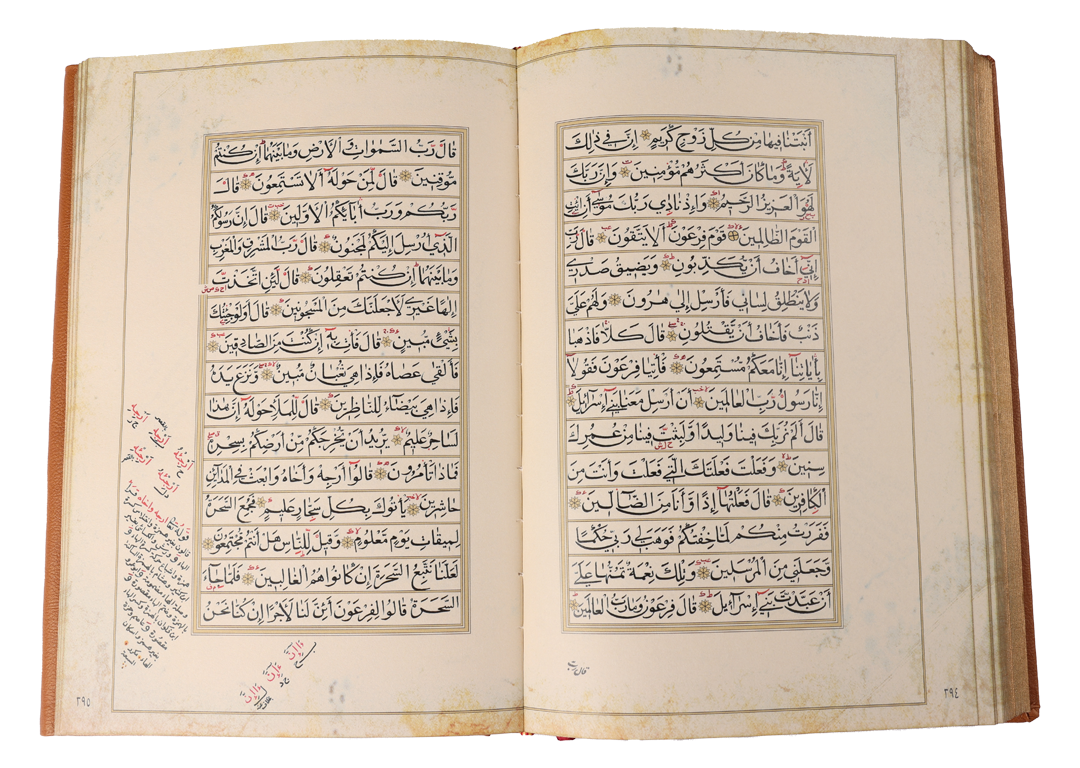 أَنْبَتْنَا فِيهَا مِنْ كُلِّ زَوْجٍ كَرِيمٍ إِنَّ فِي ذٰلِكَ
لَاٰيَةً وَمَا كَانَ اَكْثَرُهُمْ مُؤْمِنِينَ وَاِنَّ رَبَّكَ
لَهُوَ الْعَزِيزُ الرَّحِيمُ وَاِذْ نَادٰى رَبُّكَ مُوسٰٓى اَنِ ائْتِ
الْقَوْمَ الظَّالِمِينَ قَوْمَ فِرْعَوْنَ اَلَا يَتَّقُونَ قَالَ رَبِّ
اِنِّٓى اَخَافُ اَنْ يُكَذِّبُونِ وَيَضِيقُ صَدْرِى
وَلَا يَنْطَلِقُ لِسَانِى فَاَرْسِلْ اِلٰى هٰرُونَ وَلَهُمْ عَلَىَّ
ذَنْبٌ فَاَخَافُ اَنْ يَقْتُلُونِ قَالَ كَلَّا فَاذْهَبَا
بِاٰيَاتِنَٓا اِنَّا مَعَكُمْ مُسْتَمِعُونَ فَأْتِيَا فِرْعَوْنَ فَقُولَٓا
اِنَّا رَسُولُ رَبِّ الْعَالَمِينَ اَنْ اَرْسِلْ مَعَنَا بَنِٓى اِسْرَٓائِلَ
قَالَ اَلَمْ نُرَبِّكَ فِينَا وَلِيدًا وَلَبِثْتَ فِينَا مِنْ عُمُرِكَ
سِنِينَ وَفَعَلْتَ فَعْلَتَكَ الَّتِى فَعَلْتَ وَاَنْتَ مِنَ
الْكَافِرِينَ قَالَ فَعَلْتُهَٓا اِذًا وَاَنَا مِنَ الضَّٓالِّينَ
فَفَرَرْتُ مِنْكُمْ لَمَّا خِفْتُكُمْ فَوَهَبَ لِى رَبِّى حُكْمًا
وَجَعَلَنِى مِنَ الْمُرْسَلِينَ وَتِلْكَ نِعْمَةٌ تَمُنُّهَا عَلَىَّ
اَنْ عَبَّدْتَ بَنِٓى اِسْرَٓائِلَ قَالَ فِرْعَوْنُ وَمَا رَبُّ الْعَالَمِينَ
قال رب
٢٩٤
قَالَ رَبُّ السَّمٰوَاتِ وَالْاَرْضِ وَمَا بَيْنَهُمَا اِنْ كُنْتُمْ
مُوقِنِينَ قَالَ لِمَنْ حَوْلَهُٓ اَلَا تَسْتَمِعُونَ قَالَ
رَبُّكُمْ وَرَبُّ اٰبَٓائِكُمُ الْاَوَّلِينَ قَالَ اِنَّ رَسُولَكُمُ
الَّذِٓى اُرْسِلَ اِلَيْكُمْ لَمَجْنُونٌ قَالَ رَبُّ الْمَشْرِقِ وَالْمَغْرِبِ
وَمَا بَيْنَهُمَا اِنْ كُنْتُمْ تَعْقِلُونَ قَالَ لَئِنِ اتَّخَذْتَ
اِلٰهًا غَيْرِى لَاَجْعَلَنَّكَ مِنَ الْمَسْجُونِينَ قَالَ اَوَلَوْ جِئْتُكَ
بِشَىْءٍ مُبِينٍ قَالَ فَأْتِ بِهِٓ اِنْ كُنْتَ مِنَ الصَّادِقِينَ
فَاَلْقٰى عَصَاهُ فَاِذَا هِىَ ثُعْبَانٌ مُبِينٌ وَنَزَعَ يَدَهُ
فَاِذَا هِىَ بَيْضَٓاءُ لِلنَّاظِرِينَ قَالَ لِلْمَلَأِ حَوْلَهُٓ اِنَّ هٰذَا
لَسَاحِرٌ عَلِيمٌ يُرِيدُ اَنْ يُخْرِجَكُمْ مِنْ اَرْضِكُمْ بِسِحْرِهِ
فَمَاذَا تَأْمُرُونَ قَالُٓوا اَرْجِهْ وَاَخَاهُ وَابْعَثْ فِى الْمَدَٓائِنِ
حَاشِرِينَ يَأْتُوكَ بِكُلِّ سَحَّارٍ عَلِيمٍ فَجُمِعَ السَّحَرَةُ
لِمِيقَاتِ يَوْمٍ مَعْلُومٍ وَقِيلَ لِلنَّاسِ هَلْ اَنْتُمْ مُجْتَمِعُونَ
لَعَلَّنَا نَتَّبِعُ السَّحَرَةَ اِنْ كَانُوا هُمُ الْغَالِبِينَ فَلَمَّا جَٓاءَ
السَّحَرَةُ قَالُوا لِفِرْعَوْنَ اَئِنَّ لَنَا لَاَجْرًا اِنْ كُنَّا نَحْنُ
٢٩٥